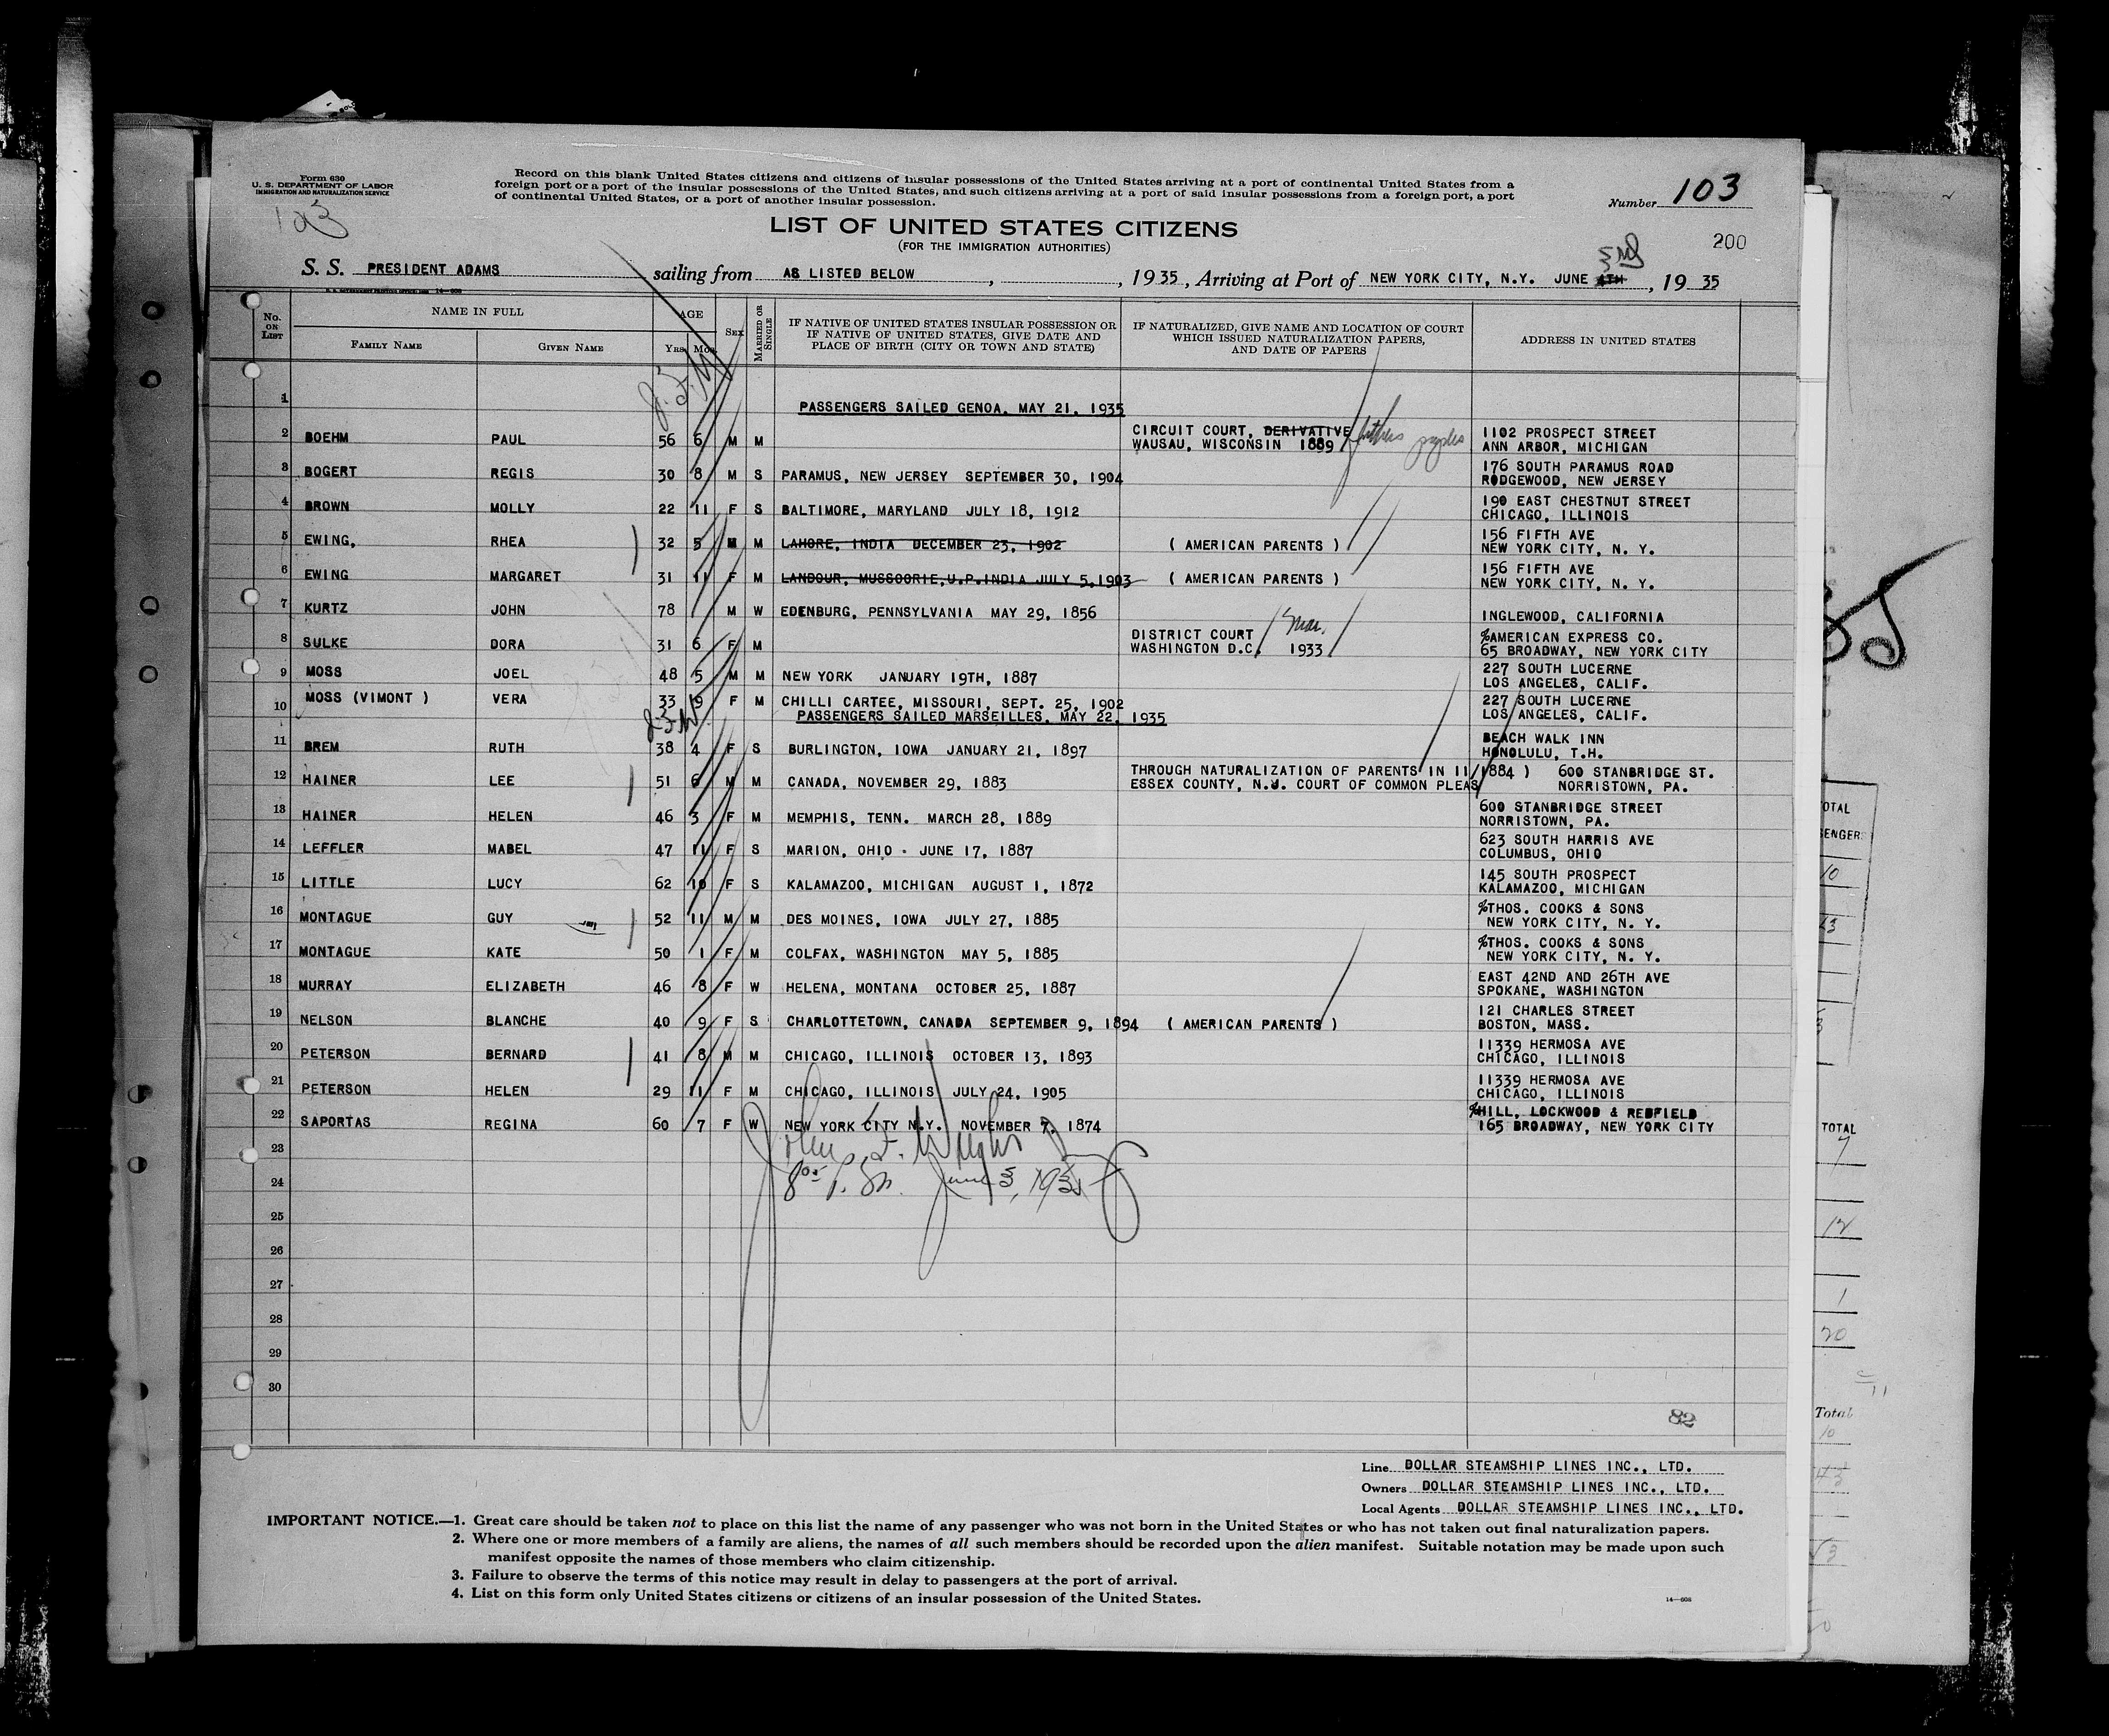 Form 630
U. S. DEPARTMENT OF LABOR
IMMIGRATION AND NATURALIZATION SERVICE
103
Record on this blank United States citizens and citizens of insular possessions of the United States arriving at a port of continental United States from a
foreign port or a port of the insular possessions of the United States, and such citizens arriving at a port of said insular possessions from a foreign port, a port
of continental United States, or a port of another insular possession.
Number 103
LIST OF UNITED STATES CITIZENS
(FOR THE IMMIGRATION AUTHORITIES)
200
S. S. PRESIDENT ADAMS sailing from AS LISTED BELOW , , 1935, Arriving at Port of NEW YORK CITY, N.Y. JUNE 4TH 3rd , 19 35
No. ON LIST
NAME IN FULL
FAMILY NAME
GIVEN NAME
AGE
YRS. MOS.
SEX
MARRIED OR SINGLE
IF NATIVE OF UNITED STATES INSULAR POSSESSION OR
IF NATIVE OF UNITED STATES, GIVE DATE AND
PLACE OF BIRTH (CITY OR TOWN AND STATE)
IF NATURALIZED, GIVE NAME AND LOCATION OF COURT
WHICH ISSUED NATURALIZATION PAPERS,
AND DATE OF PAPERS
ADDRESS IN UNITED STATES
J.F.W.
1 PASSENGERS SAILED GENOA, MAY 21, 1935
2 BOEHM PAUL 56 6 M M CIRCUIT COURT, DERIVATIVE fathers papers 1102 PROSPECT STREET
WAUSAU, WISCONSIN 1889 ANN ARBOR, MICHIGAN
3 BOGERT REGIS 30 8 M S PARAMUS, NEW JERSEY SEPTEMBER 30, 1904 176 SOUTH PARAMUS ROAD
RODGEWOOD, NEW JERSEY
4 BROWN MOLLY 22 11 F S BALTIMORE, MARYLAND JULY 18, 1912 190 EAST CHESTNUT STREET
CHICAGO, ILLINOIS
5 EWING, RHEA 32 5 M M LAHORE, INDIA DECEMBER 23, 1902 ( AMERICAN PARENTS ) 156 FIFTH AVE
NEW YORK CITY, N. Y.
6 EWING MARGARET 31 11 F M LANDOUR, MUSSOORIE,U.P.INDIA JULY 5,1903 ( AMERICAN PARENTS ) 156 FIFTH AVE
NEW YORK CITY, N. Y.
7 KURTZ JOHN 78 M W EDENBURG, PENNSYLVANIA MAY 29, 1856 INGLEWOOD, CALIFORNIA
8 SULKE DORA 31 6 F M DISTRICT COURT Mar. %AMERICAN EXPRESS CO.
WASHINGTON D.C. 1933 65 BROADWAY, NEW YORK CITY
9 MOSS JOEL 48 5 M M NEW YORK JANUARY 19TH, 1887 227 SOUTH LUCERNE
LOS ANGELES, CALIF.
10 MOSS (VIMONT ) VERA 33 9 F M CHILLI CARTEE, MISSOURI, SEPT. 25, 1902 227 SOUTH LUCERNE
LOS ANGELES, CALIF.
PASSENGERS SAILED MARSEILLES, MAY 22, 1935
J.F.W.
11 BREM RUTH 38 4 F S BURLINGTON, IOWA JANUARY 21, 1897 BEACH WALK INN
HONOLULU, T.H.
12 HAINER LEE 51 6 M M CANADA, NOVEMBER 29, 1883 THROUGH NATURALIZATION OF PARENTS IN 11/1884 ) 600 STANBRIDGE ST.
ESSEX COUNTY, N.J. COURT OF COMMON PLEAS NORRISTOWN, PA.
13 HAINER HELEN 46 3 F M MEMPHIS, TENN. MARCH 28, 1889 600 STANBRIDGE STREET
NORRISTOWN, PA.
14 LEFFLER MABEL 47 11 F S MARION, OHIO - JUNE 17, 1887 623 SOUTH HARRIS AVE
COLUMBUS, OHIO
15 LITTLE LUCY 62 10 F S KALAMAZOO, MICHIGAN AUGUST 1, 1872 145 SOUTH PROSPECT
KALAMAZOO, MICHIGAN
16 MONTAGUE GUY 52 11 M M DES MOINES, IOWA JULY 27, 1885 %THOS. COOKS & SONS
NEW YORK CITY, N. Y.
17 MONTAGUE KATE 50 1 F M COLFAX, WASHINGTON MAY 5, 1885 %THOS. COOKS & SONS
NEW YORK CITY, N. Y.
18 MURRAY ELIZABETH 46 8 F W HELENA, MONTANA OCTOBER 25, 1887 EAST 42ND AND 26TH AVE
SPOKANE, WASHINGTON
19 NELSON BLANCHE 40 9 F S CHARLOTTETOWN, CANADA SEPTEMBER 9, 1894 ( AMERICAN PARENTS ) 121 CHARLES STREET
BOSTON, MASS.
20 PETERSON BERNARD 41 8 M M CHICAGO, ILLINOIS OCTOBER 13, 1893 11339 HERMOSA AVE
CHICAGO, ILLINOIS
21 PETERSON HELEN 29 11 F M CHICAGO, ILLINOIS JULY 24, 1905 11339 HERMOSA AVE
CHICAGO, ILLINOIS
22 SAPORTAS REGINA 60 7 F W NEW YORK CITY N.Y. NOVEMBER 7, 1874 %HILL, LOCKWOOD & REDFIELD
165 BROADWAY, NEW YORK CITY
23 John F. Wright
24 8:05 P.M. June 3, 1935
25
26
27
28
29
30
82
Line DOLLAR STEAMSHIP LINES INC., LTD.
Owners DOLLAR STEAMSHIP LINES INC., LTD.
Local Agents DOLLAR STEAMSHIP LINES INC., LTD.
IMPORTANT NOTICE.—1. Great care should be taken not to place on this list the name of any passenger who was not born in the United States or who has not taken out final naturalization papers.
2. Where one or more members of a family are aliens, the names of all such members should be recorded upon the alien manifest. Suitable notation may be made upon such
manifest opposite the names of those members who claim citizenship.
3. Failure to observe the terms of this notice may result in delay to passengers at the port of arrival.
4. List on this form only United States citizens or citizens of an insular possession of the United States.
14—608
TOTAL
10
43
TOTAL
7
12
1
20
Total
10
43